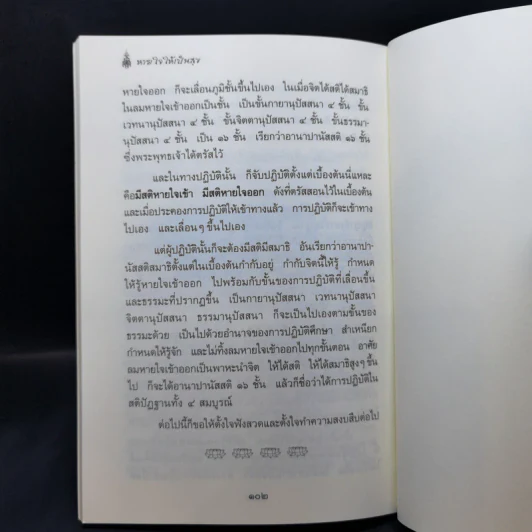 หายใจให้เป็นสุข
หายใจออก ก็จะเลื่อนภูมิชั้นขึ้นไปเอง ในเมื่อจิตได้สติได้สมาธิ
ในลมหายใจเข้าออกเป็นชั้น เป็นชั้นกายานุปัสสนา ๔ ชั้น ชั้น
เวทนานุปัสสนา ๔ ชั้น ชั้นจิตตานุปัสสนา ๔ ชั้น ชั้นธรรมา-
นุปัสสนา ๔ ชั้น เป็น ๑๖ ชั้น เรียกว่าอานาปานัสสติ ๑๖ ชั้น
ซึ่งพระพุทธเจ้าได้ตรัสไว้
และในทางปฏิบัตินั้น ก็จับปฏิบัติตั้งแต่เบื้องต้นนี่แหละ
คือมีสติหายใจเข้า มีสติหายใจออก ดังที่ตรัสสอนไว้ในเบื้องต้น
และเมื่อประคองการปฏิบัติให้เข้าทางแล้ว การปฏิบัติก็จะเข้าทาง
ไปเอง และเลื่อนๆ ขึ้นไปเอง
แต่ผู้ปฏิบัตินั้นก็จะต้องมีสติมีสมาธิ อันเรียกว่าอานาปา-
นัสสติสมาธิตั้งแต่ในเบื้องต้นกำกับอยู่ กำกับจิตนี้ให้รู้ กำหนด
ให้รู้หายใจเข้าออก ไปพร้อมกับชั้นของการปฏิบัติที่เลื่อนขึ้น
และธรรมะที่ปรากฏขึ้น เป็นกายานุปัสสนา เวทนานุปัสสนา
จิตตานุปัสสนา ธรรมานุปัสสนา ก็จะเป็นไปเองตามชั้นของ
ธรรมะด้วย เป็นไปด้วยอำนาจของการปฏิบัติศึกษา สำเหนียก
กำหนดให้รู้จัก และไม่ทิ้งลมหายใจเข้าออกไปทุกขั้นตอน อาศัย
ลมหายใจเข้าออกเป็นพาหะนำจิต ให้ได้สติ ให้ได้สมาธิสูงๆ ขึ้น
ไป ก็จะได้อานาปานัสสติ ๑๖ ชั้น แล้วก็ชื่อว่าได้การปฏิบัติใน
สติปัฏฐานทั้ง ๔ สมบูรณ์
ต่อไปนี้ก็ขอให้ตั้งใจฟังสวดและตั้งใจทำความสงบสืบต่อไป
๑๐๒